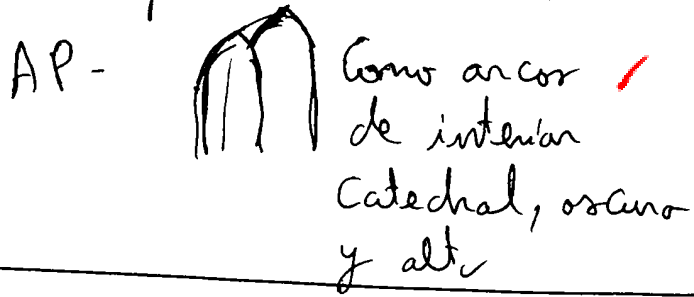 AP- Como arcos
de interior
Catedral, oscuro
y alto